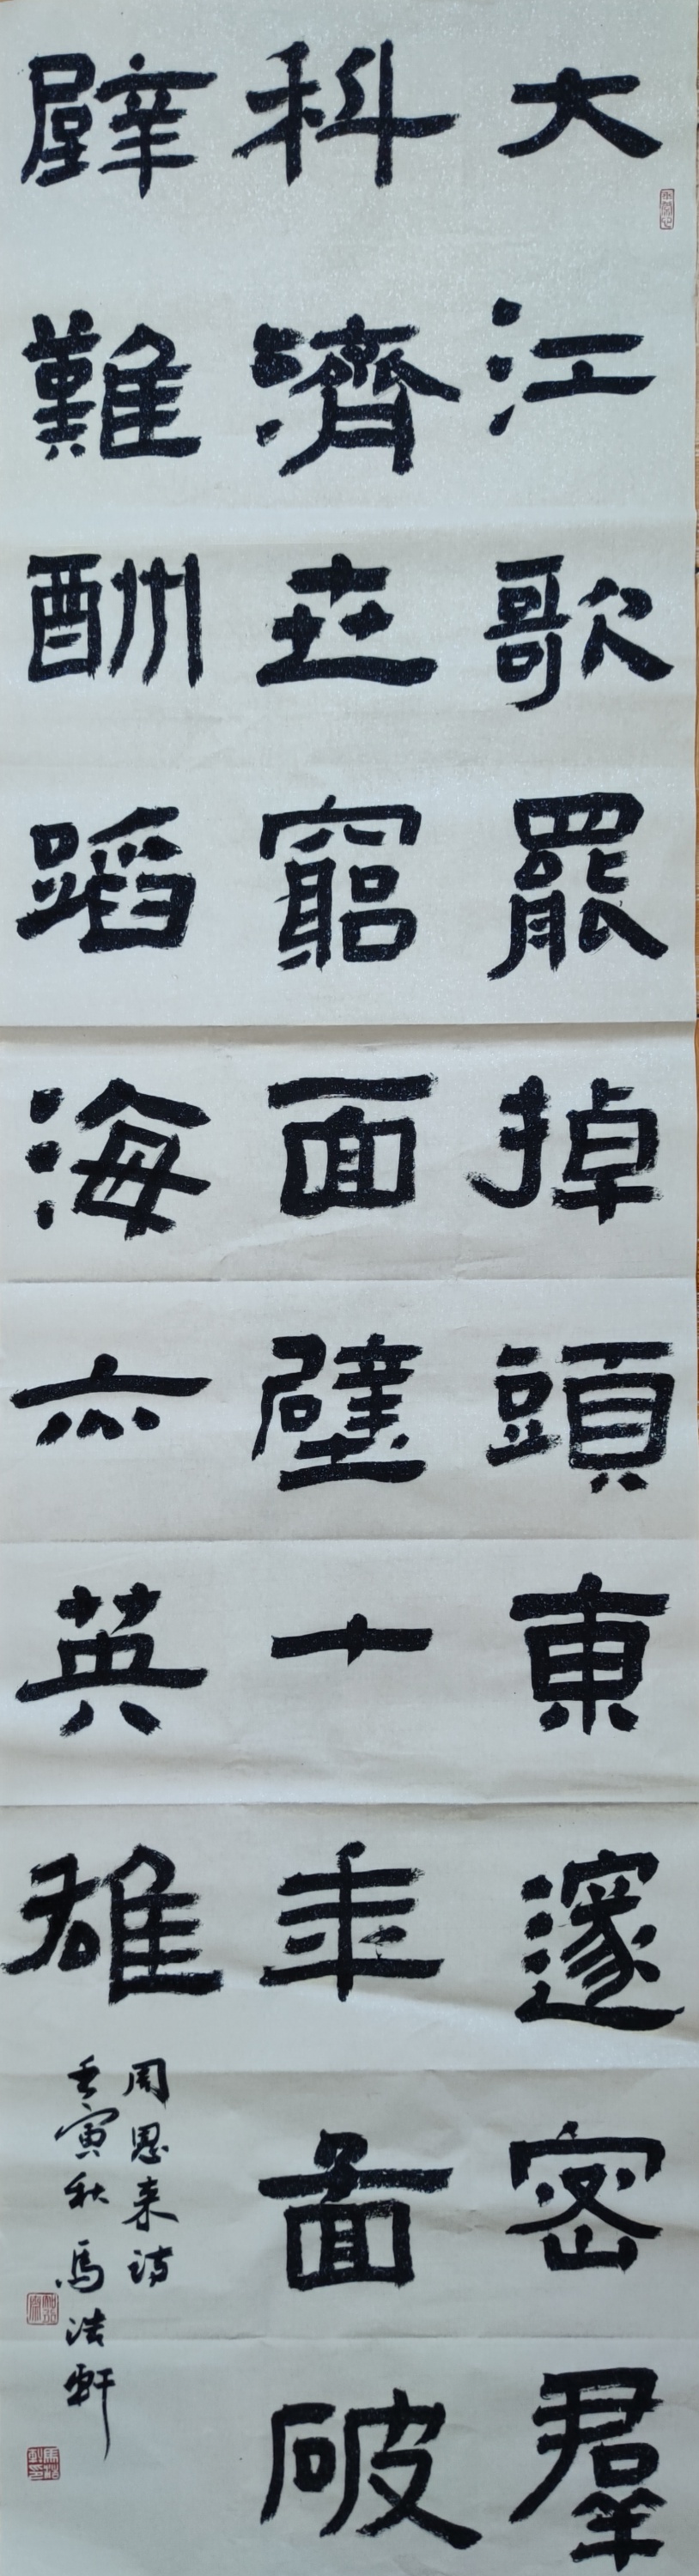 大江歌罷掉頭東邃密羣
科濟世窮面壁十年圖破
壁難酬蹈海亦英雄
周恩来诗
壬寅秋馬浩軒